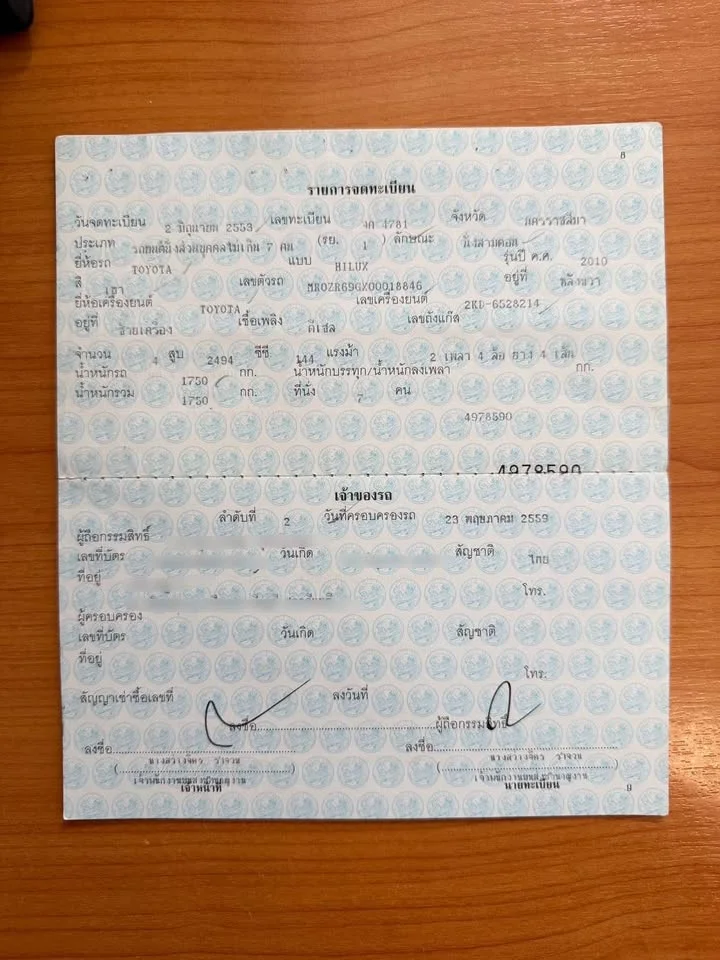 8
รายการจดทะเบียน
วันจดทะเบียน 2 มิถุนายน 2553 เลขทะเบียน 4781 จังหวัด นครราชสีมา
ประเภท รถยนต์นั่งส่วนบุคคลไม่เกิน 7 คน (รย. 1 ) ลักษณะ นั่งสามตอน
ยี่ห้อรถ TOYOTA แบบ HILUX รุ่นปี ค.ศ. 2010
สี เทา เลขตัวรถ MR0ZR69GX00018846 อยู่ที่ หลังขวา
ยี่ห้อเครื่องยนต์ TOYOTA เลขเครื่องยนต์ 2KD-6528214
อยู่ที่ ซ้ายเครื่อง เชื้อเพลิง ดีเซล เลขถังแก๊ส
จำนวน 4 สูบ 2494 ซีซี 144 แรงม้า 2 เพลา 4 ล้อ ยาง 4 เส้น
น้ำหนักรถ 1750 กก. น้ำหนักบรรทุก/น้ำหนักลงเพลา กก.
น้ำหนักรวม 1750 กก. ที่นั่ง 7 คน
4978590
4978590
เจ้าของรถ
ลำดับที่ 2 วันที่ครอบครองรถ 23 พฤษภาคม 2559
ผู้ถือกรรมสิทธิ์
เลขที่บัตร วันเกิด สัญชาติ ไทย
ที่อยู่
โทร.
ผู้ครอบครอง
เลขที่บัตร วันเกิด สัญชาติ
ที่อยู่
โทร.
สัญญาเช่าซื้อเลขที่ ลงวันที่
ลงชื่อ ผู้ถือกรรมสิทธิ์
ลงชื่อ ลงชื่อ
เจ้าหน้าที่ นายทะเบียน
9